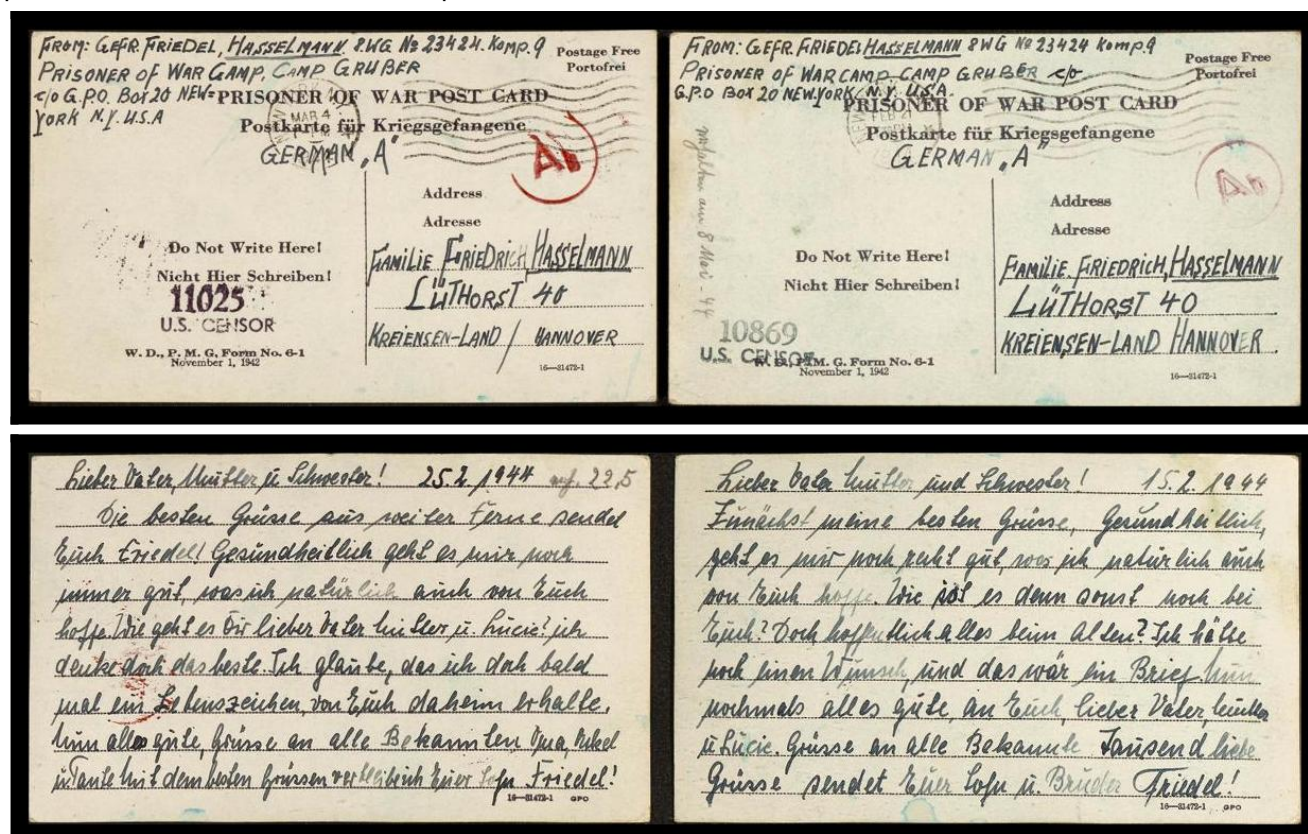 FROM: GEFR. FRIEDEL, HASSELMANN. 8WG No 23424. Komp. 9
PRISONER OF WAR CAMP, CAMP GRUBER
c/o G.P.O. Box 20 NEW=
YORK N.Y. U.S.A
Postage Free
Portofrei
PRISONER OF WAR POST CARD
MAR 4
Postkarte für Kriegsgefangene
GERMAN „A"
Address
Adresse
Do Not Write Here!
Nicht Hier Schreiben!
11025
U.S. CENSOR
W. D., P. M. G. Form No. 6-1
November 1, 1942
FAMILIE FRIEDRICH HASSELMANN
LÜTHORST 40
KREIENSEN-LAND / HANNOVER
16—31472-1
FROM: GEFR. FRIEDEL HASSELMANN 8WG No 23424 Komp. 9
PRISONER OF WAR CAMP, CAMP GRUBER c/o
G.P.O Box 20 NEW.YORK, N.Y. U.S.A.
Postage Free
Portofrei
PRISONER OF WAR POST CARD
FEB 21
Postkarte für Kriegsgefangene
GERMAN „A"
am 8 Mai - 44
Address
Adresse
Do Not Write Here!
Nicht Hier Schreiben!
10869
U.S. CENSOR
W. D., P. M. G. Form No. 6-1
November 1, 1942
FAMILIE. FRIEDRICH, HASSELMANN
LÜTHORST 40
KREIENSEN-LAND HANNOVER.
16—31472-1
Lieber Vater, Mutter u Schwester! 25.2.1944 22,5
Die besten Grüsse aus weiter Ferne sendet
Euch Friedel! Gesundheitlich geht es mir noch
immer gut, was ich natürlich auch von Euch
hoffe. Wie geht es Dir lieber Vater Mutter u. Lucie? ich
denke doch das beste. Ich glaube, das ich doch bald
mal ein Lebenszeichen, von Euch daheim erhalte.
Nun alles gute, Grüsse an alle Bekannten Oma, Onkel
u. Tante Mit dem besten Grüssen verbleib ich Euer Sohn Friedel!
16—31472-1 GPO
Lieber Vater Mutter und Schwester! 15.2.1944
Zunächst meine besten Grüsse, Gesundheitlich,
geht es mir noch recht gut, was ich natürlich auch
von Euch hoffe. Wie ist es denn sonst noch bei
Euch? Doch hoffentlich alles beim Alten? Ich hätte
noch einen Wunsch, und das wär ein Brief. Nun
nochmals alles gute, an Euch, lieber Vater, Mutter
u. Lucie. Grüsse an alle Bekannte Tausend liebe
Grüsse sendet Euer Sohn u. Bruder Friedel!
16—31472-1 GPO